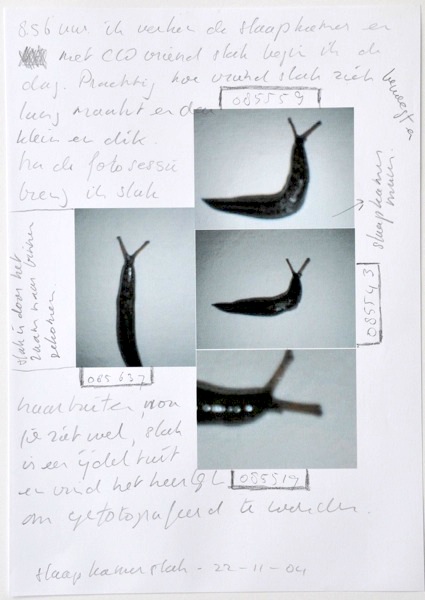 8.56 uur ik verken de slaapkamer en
met CCO vriend slak begin ik de
dag. Prachtig hoe vriend slak zich
lang maakt en dan
klein en dik.
Na de fotosessie
breng ik slak
085559
beweegt
slaapkamer
muur.
085543
slak is door het
raam naar binnen
gekomen.
085637
naar buiten,
je ziet wel, slak
is een ijdeltuit
en vind het heerlijk
085519
om gefotografeerd te worden.
slaapkamerslak - 22-11-04